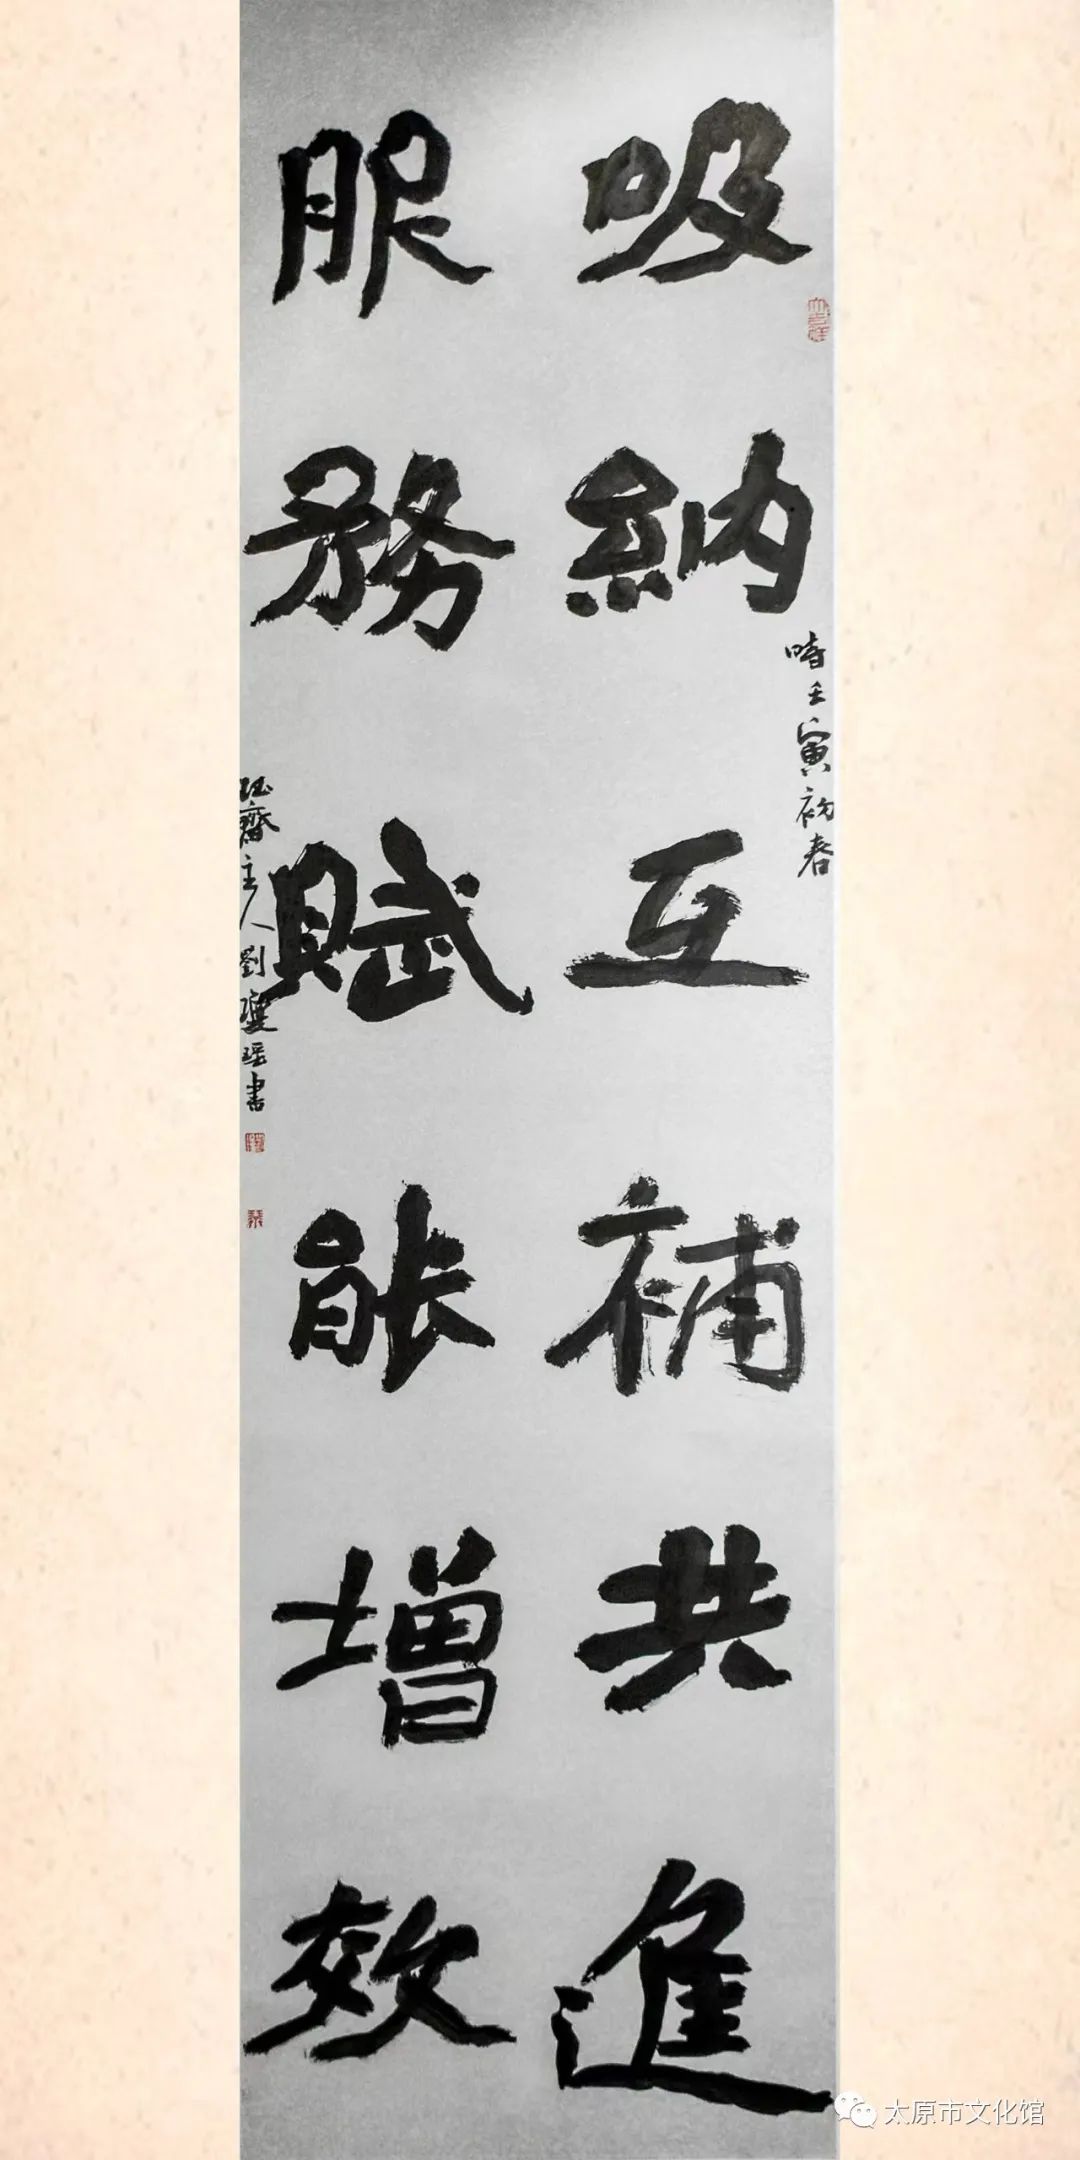 吸納互補共進
時壬寅初春
服務賦能增效
主人劉
瑶書
太原市文化馆